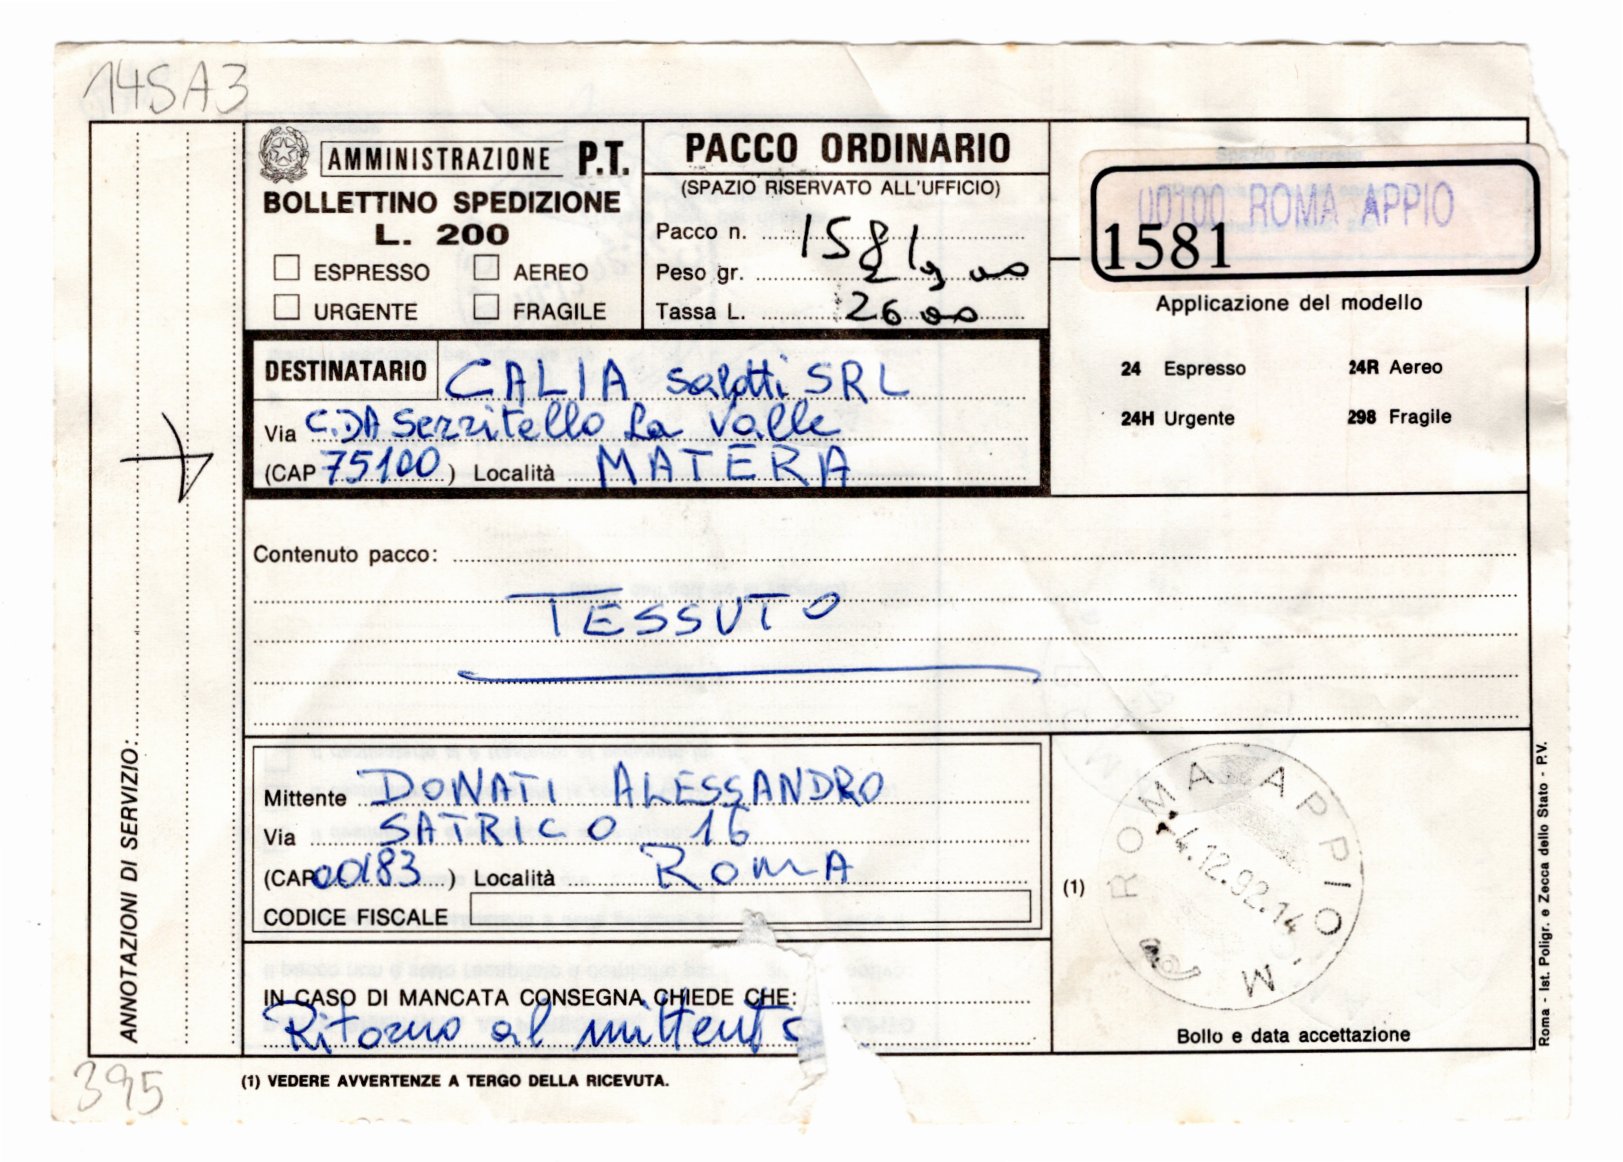 14SA3
AMMINISTRAZIONE P.T.
BOLLETTINO SPEDIZIONE
L. 200
ESPRESSO AEREO
URGENTE FRAGILE
PACCO ORDINARIO
(SPAZIO RISERVATO ALL'UFFICIO)
Pacco n. 1581
Peso gr.
Tassa L. 2600
00100 ROMA APPIO
1581
Applicazione del modello
24 Espresso 24R Aereo
24H Urgente 298 Fragile
DESTINATARIO CALIA Salotti SRL
Via C.DA Serritello La Valle
(CAP 75100) Località MATERA
Contenuto pacco:
TESSUTO
Mittente DONATI ALESSANDRO
Via SATRICO 16
(CAP 00183) Località ROMA
CODICE FISCALE
IN CASO DI MANCATA CONSEGNA CHIEDE CHE:
Ritorno al mittente
(1)
ROMA APPIO
-4.12.92.14
Bollo e data accettazione
ANNOTAZIONI DI SERVIZIO:
Roma - Ist. Poligr. e Zecca dello Stato - P.V.
395
(1) VEDERE AVVERTENZE A TERGO DELLA RICEVUTA.